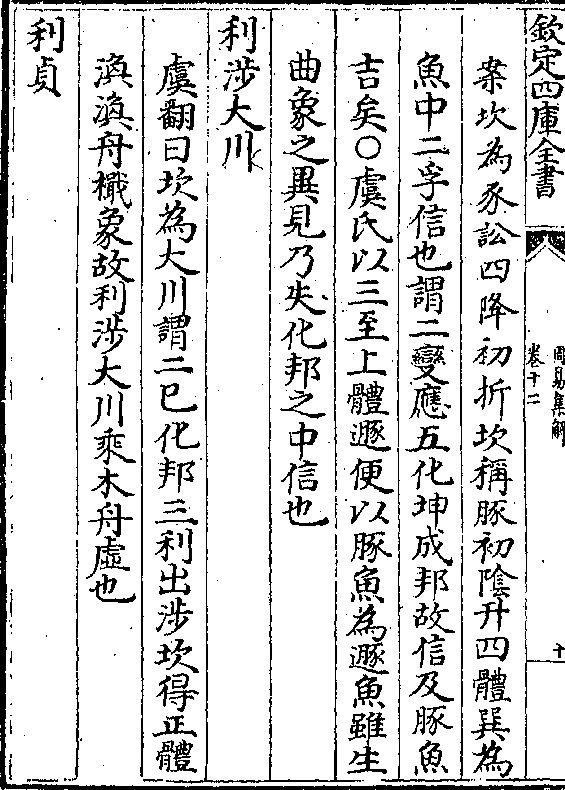 欽定四庫全書
周易集解
卷十二
十
案坎為豕訟四降初折坎稱豚初陰升四體巽為
魚中二孚信也謂二變應五化坤成邦故信及豚魚
吉矣○虞氏以三至上體遯便以豚魚為遯魚雖生
曲象之異見乃失化邦之中信也
利涉大川
虞翻曰坎為大川謂二已化邦三利出涉坎得正體
渙渙舟檝象故利涉大川乘木舟虛也
利貞